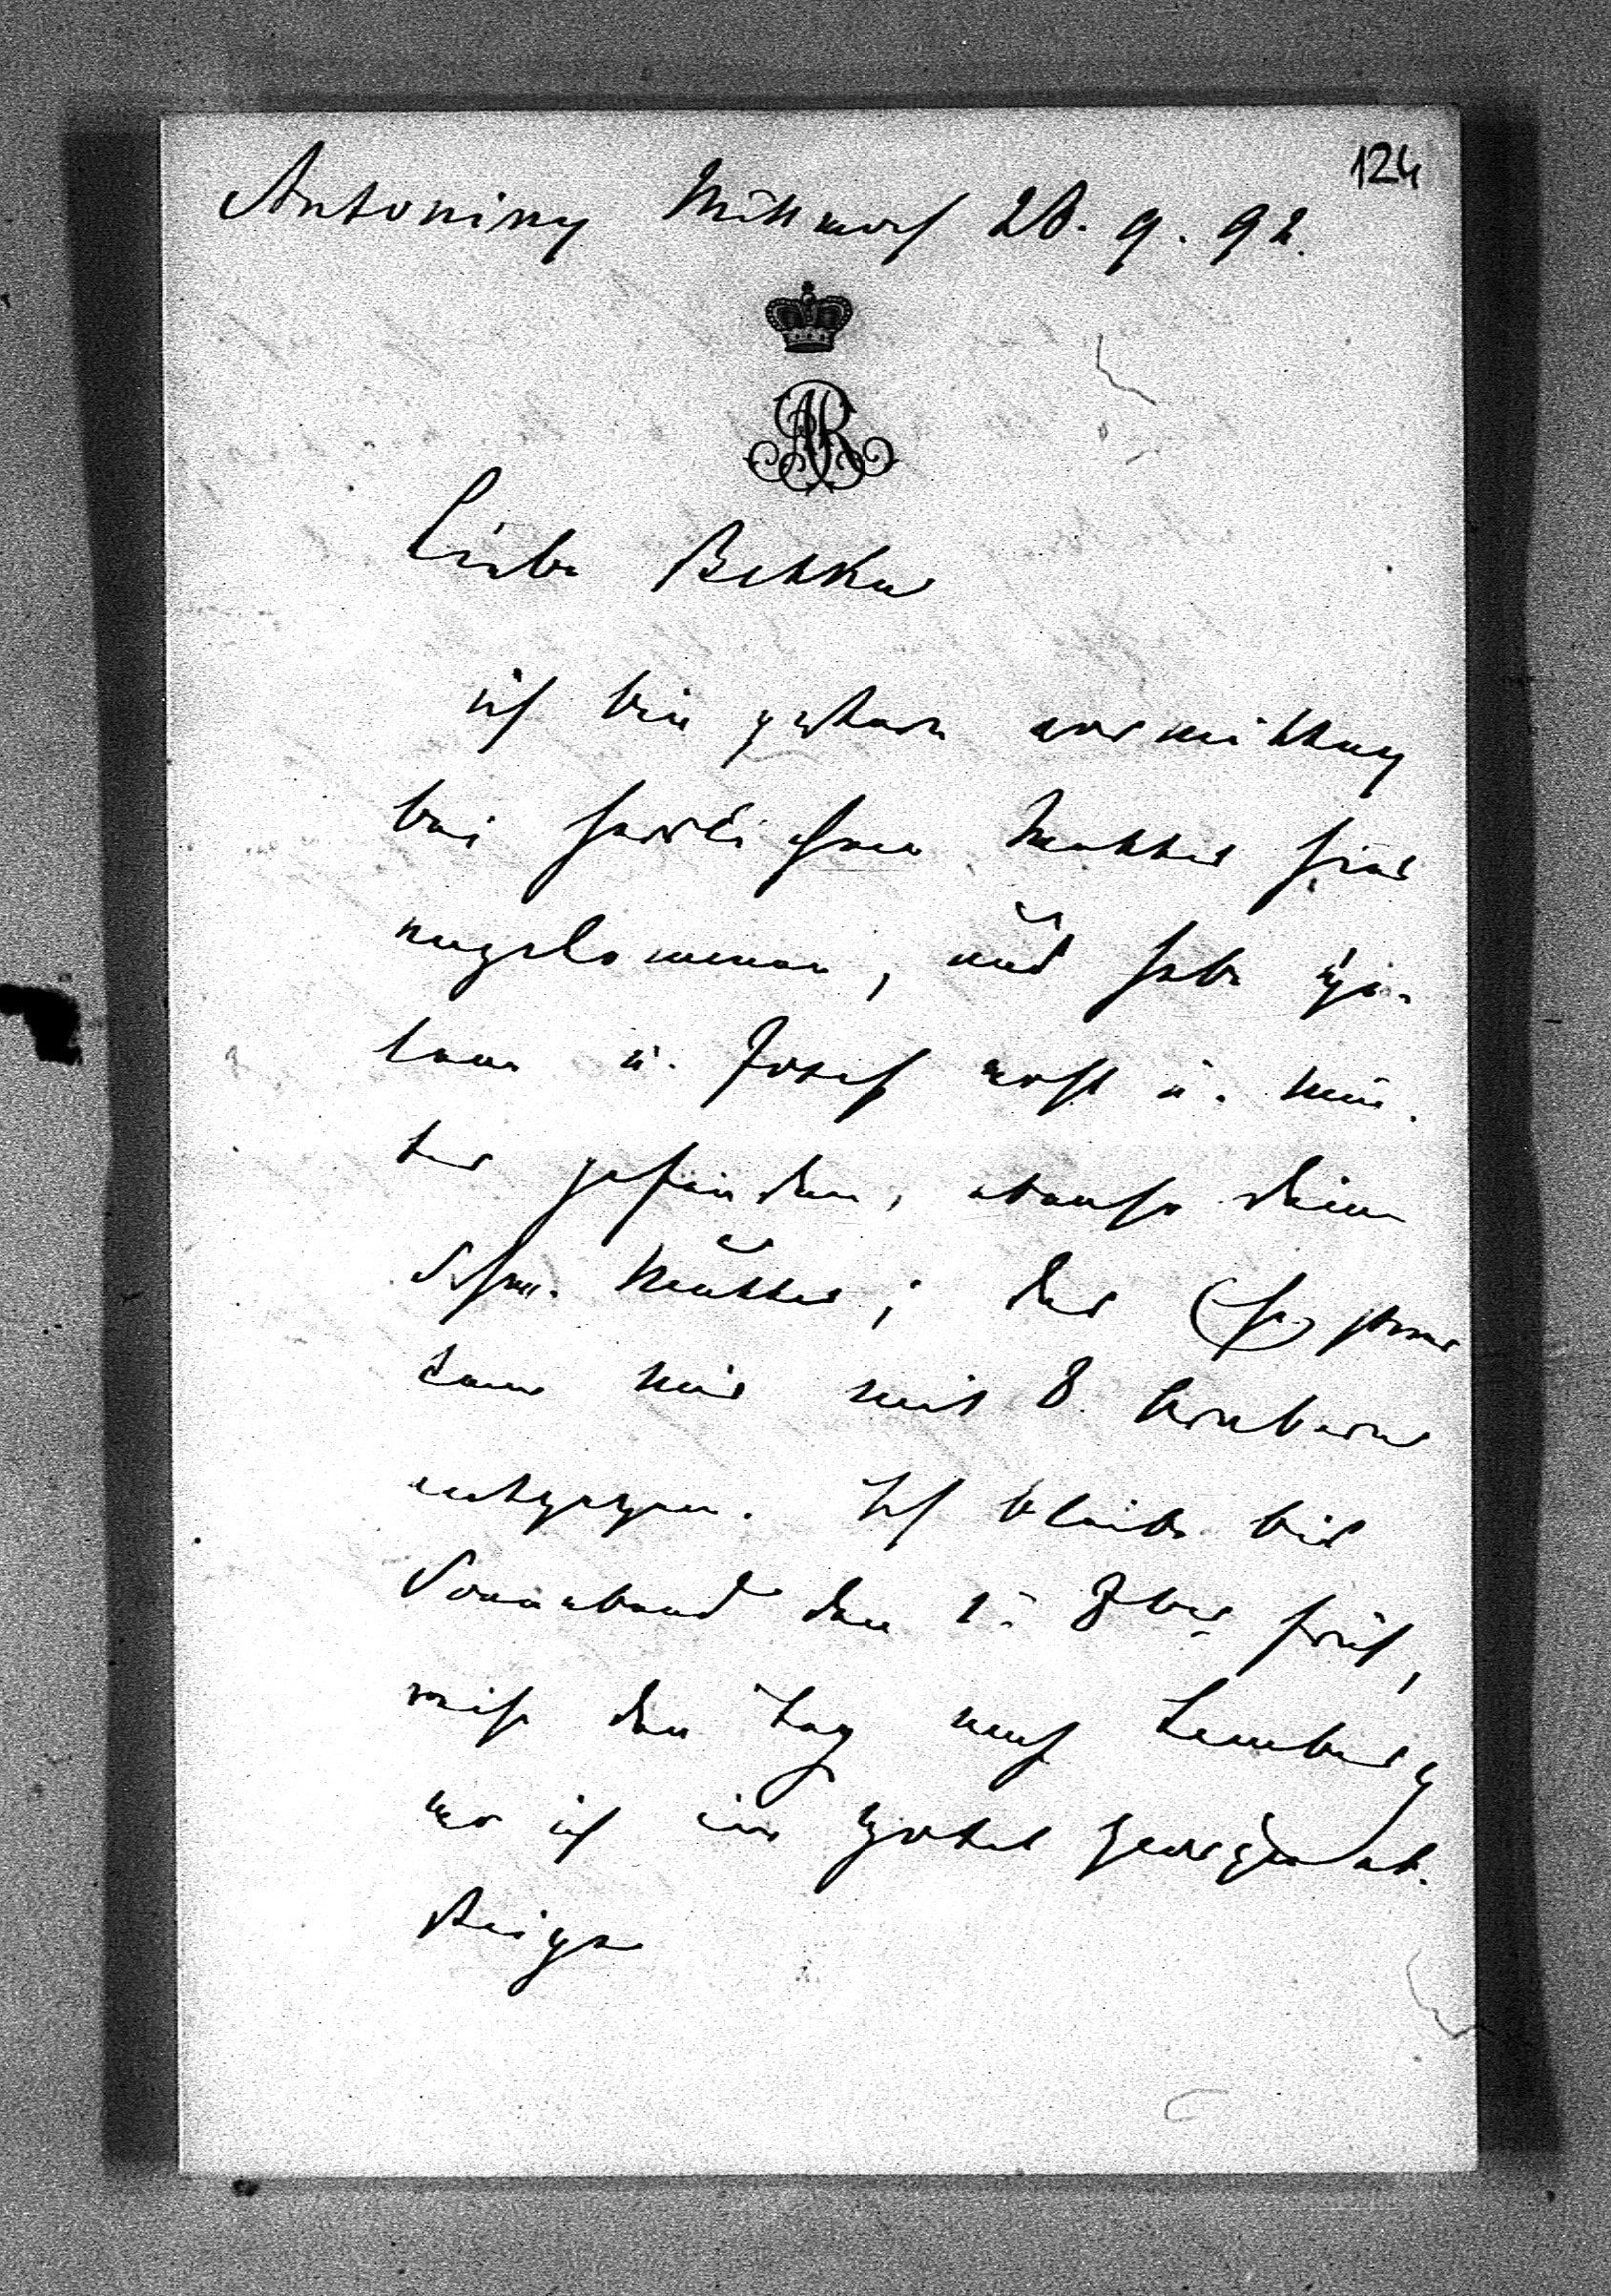 124
Antoniny Mittwoch 28. 9. 92.
AR
Liebe Betka
ich bin gestern vormittag
bei herrlichem Wetter hier
angekommen, und habe
u. Josef wohl u. mun-
ter gefunden, ebenso deine
Schw. Mutter; der
kam mir mit 8.
entgegen. Ich bleibe bis
Sonnabend den 1. 8ber früh,
reise den Tag nach Lemberg
wo ich im Hotel George ab-
steige